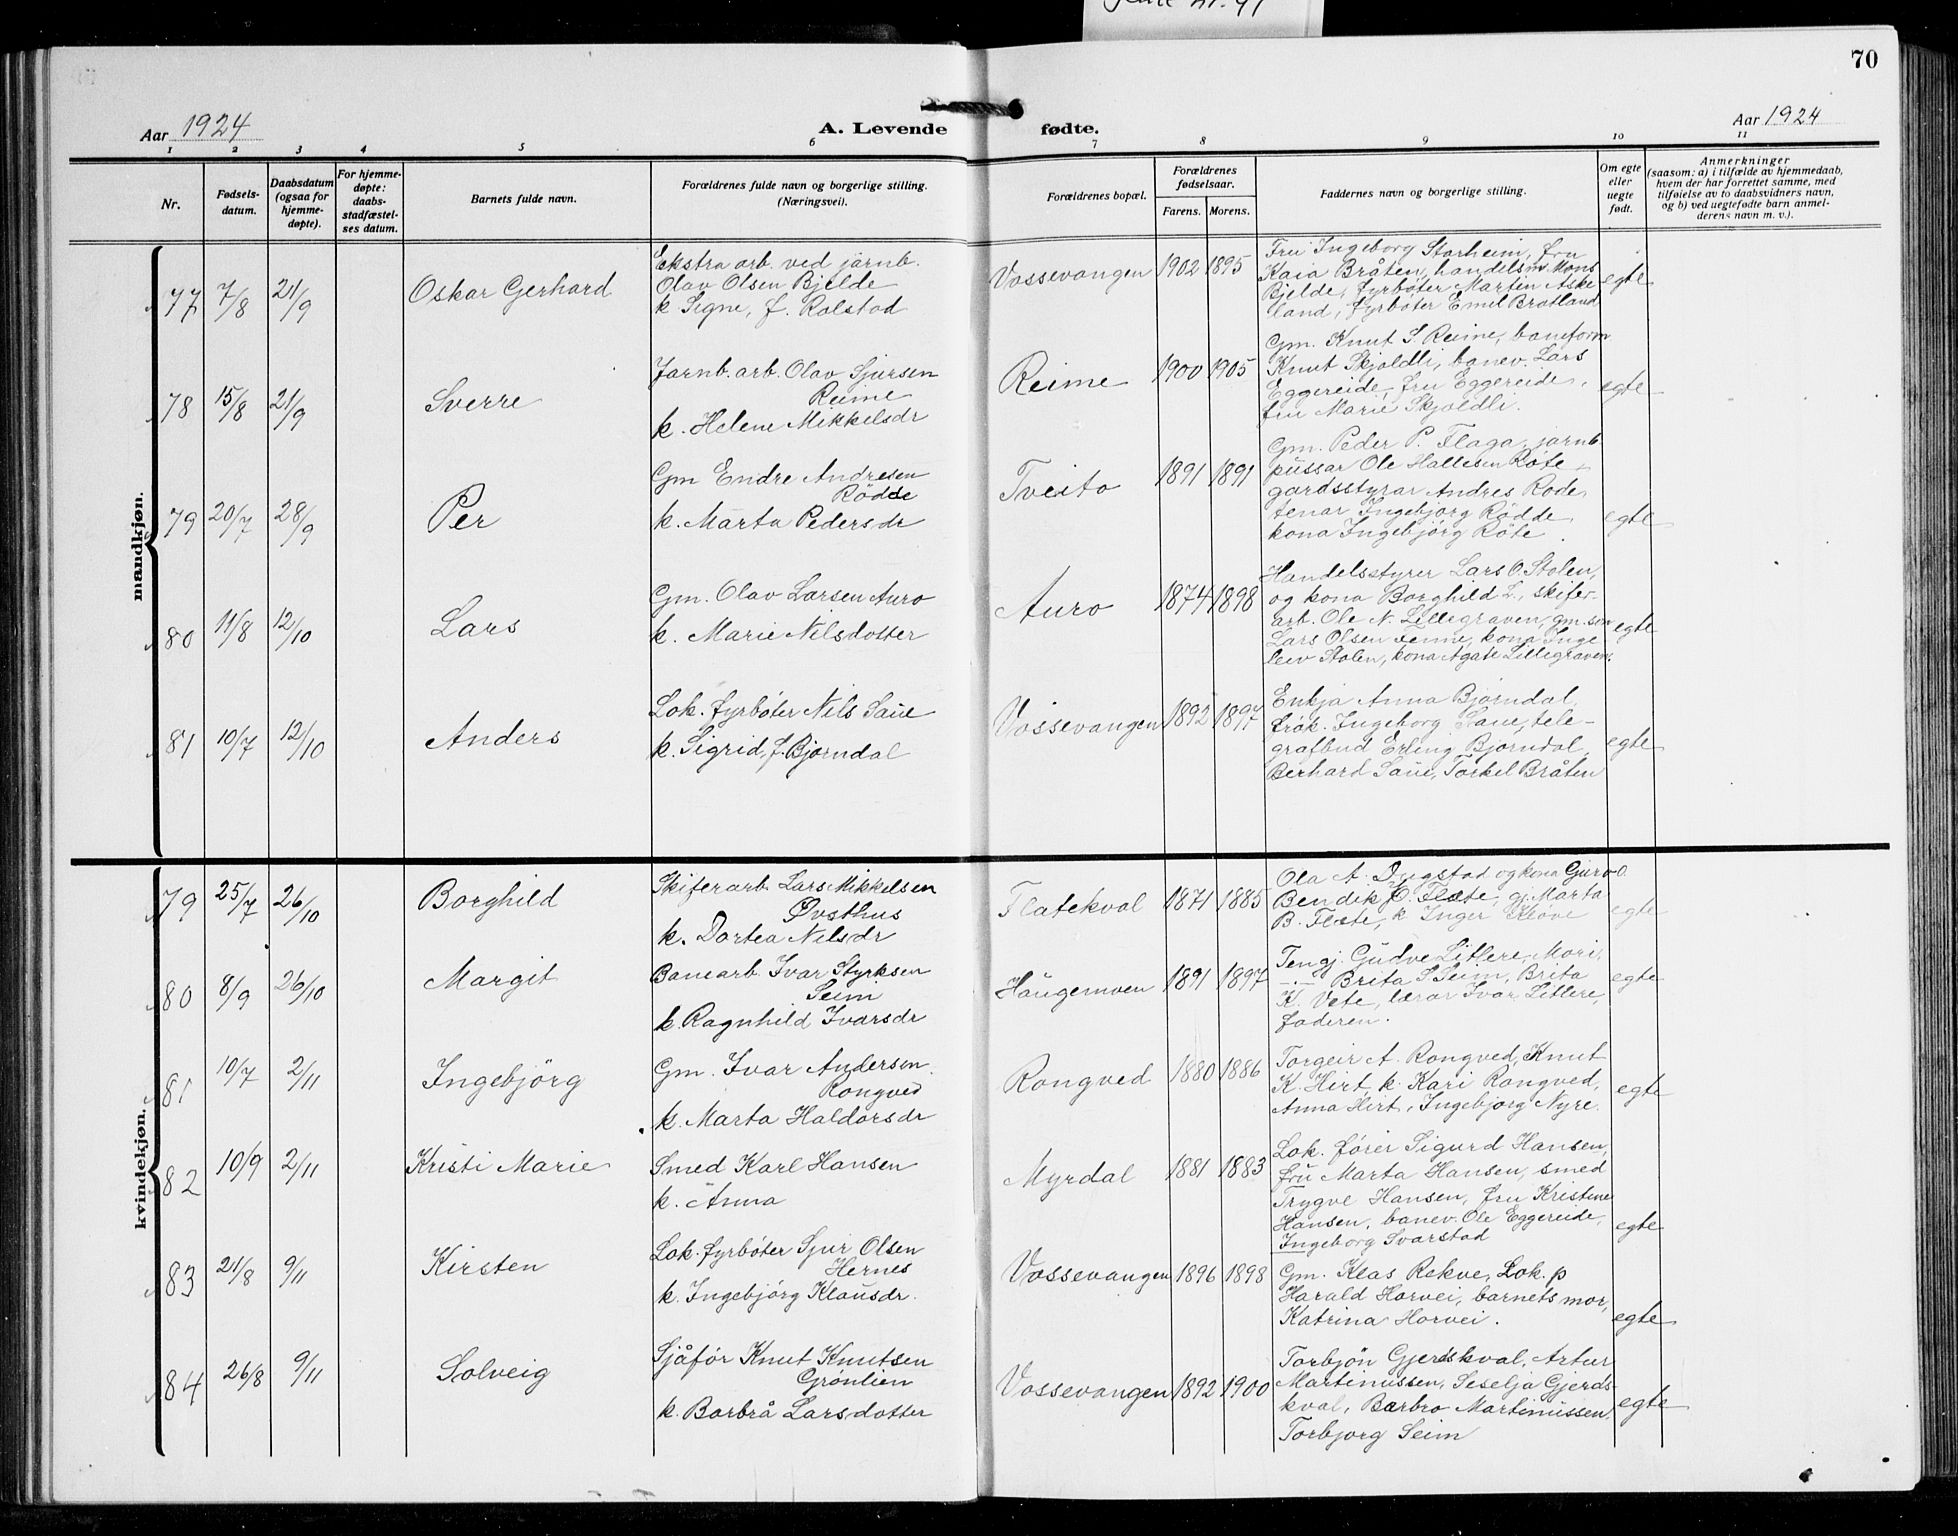 70
Aar 1924
A. Levende fødte.
Aar 1924
1 2 3 4 5 6 7 8 9 10 11
Nr.
Fødsels-
datum.
Daabsdatum
(ogsaa for
hjemme-
døpte).
For hjemme-
døpte:
daabs-
stadfæstel-
ses datum.
Barnets fulde navn.
Forældrenes fulde navn og borgerlige stilling.
(Næringsvei).
Forældrenes bopæl.
Forældrenes
fødselsaar.
Farens. Morens.
Faddernes navn og borgerlige stilling.
Om egte
eller
uegte
født.
Anmerkninger
(saasom: a) i tilfælde av hjemmedaab,
hvem der har forrettet samme, med
tilføielse av to daabsvidners navn,
og b) ved uegtefødte barn anmel-
derens navn m. v.).
mandkjøn.
77 7/8 21/9 Oskar Gerhard
Ekstra arb. ved jarnb.
Olav Olsen Bjelde
k Signe, f. Rolstad
Vossevangen 1902 1895
Fru Ingeborg Storheim, fru
Kaia Bråten, handelsm. Mons
Bjelde, fyrbøter Martin Aske-
land, fyrbøter Emil Brotland
egte
78 15/8 21/9 Sverre
Jarnb. arb. Olav Sjursen
Reime
k. Helene Mikkelsdr
Reime 1900 1905
Gm. Knut S. Reime, baneform
Knut Skjoldli, banev. Lars
Eggereide, fru Eggereide,
fru Marie Skjoldli.
egte
79 20/7 28/9 Per
Gm Endre Andresen
Rödde
k. Marta Pedersdr
Tveito 1891 1891
Gm. Peder P. Flaga, jarnb
pussar Ole Hallesen Röte
gardsstyrar Andres Rode,
tenar Ingebjörg Rödde,
kona Ingebjörg Röte.
egte
80 11/8 12/10 Lars
Gm. Olav Larsen Auro
k. Marie Nilsdotter
Auro 1874 1898
Handelsstyrer Lars O. Stolen,
og kona Borghild L., skifer-
arb. Ole N. Lillegraven, gm. son
Lars Olsen Fenne, kona Inge
leiv Stolen, kona Agate Lillegraven.
egte
81 10/7 12/10 Anders
Lok. fyrbøter Nils Saue
k. Sigrid, f. Bjørndal
Vossevangen 1892 1897
Enkja Anna Bjørndal,
frøk. Ingeborg Saue, tele-
grafbud Erling Bjørndal,
Gerhard Saue, Torkel Bråten
egte
kvindekjøn.
79 25/7 26/10 Borghild
Skiferarb. Lars Mikkelsen
Øvsthus
k. Dortea Nilsdr
Flatekval 1871 1885
Ola A. Dugstad og kona Guro O.
Bendik O. Flæte, gj. Marta
B. Flæte, k Inger Kløve
egte
80 8/9 26/10 Margit
Banearb. Ivar Styrksen
Seim
k. Ragnhild Ivarsdr
Haugemoen 1891 1897
Tengj. Gudve Litlere, Mari,
-.- Brita S Seim, Brita
K. Væte, lærar Ivar Litlere,
faderen.
egte
81 10/7 2/11 Ingebjörg
Gm. Ivar Andersen
Rongved
k. Marta Haldorsdr
Rongved 1880 1886
Torgeir A. Rongved, Knut
K. Hirt, k. Kari Rongved,
Anna Hirt, Ingebjorg Nyre.
egte
82 10/9 2/11 Kristi Marie
Smed Karl Hansen
k. Anna
Myrdal 1881 1883
Lok. fører Sigurd Hansen,
fru Marta Hansen, smed
Trygve Hansen, fru Kristine
Hansen, banev. Ole Eggereide,
Ingeborg Svarstad
egte
83 21/8 9/11 Kirsten
Lok. fyrbøter Sjur Olsen
Hernes
k. Ingebjörg Klausdr.
Vossevangen 1896 1898
Gm. Klas Rekve, Lok. p
Harald Horvei, barnets mor,
Katrina Horvei.
egte
84 26/8 9/11 Solveig
Sjåfór Knut Knutsen
Grönlien
k. Borbrå Larsdotter
Vossevangen 1892 1900
Torbjön Gjerdskval, Artur
Martinussen, Seselja Gjerds-
kval, Barbro Martinussen,
Torbjorg Seim
egte